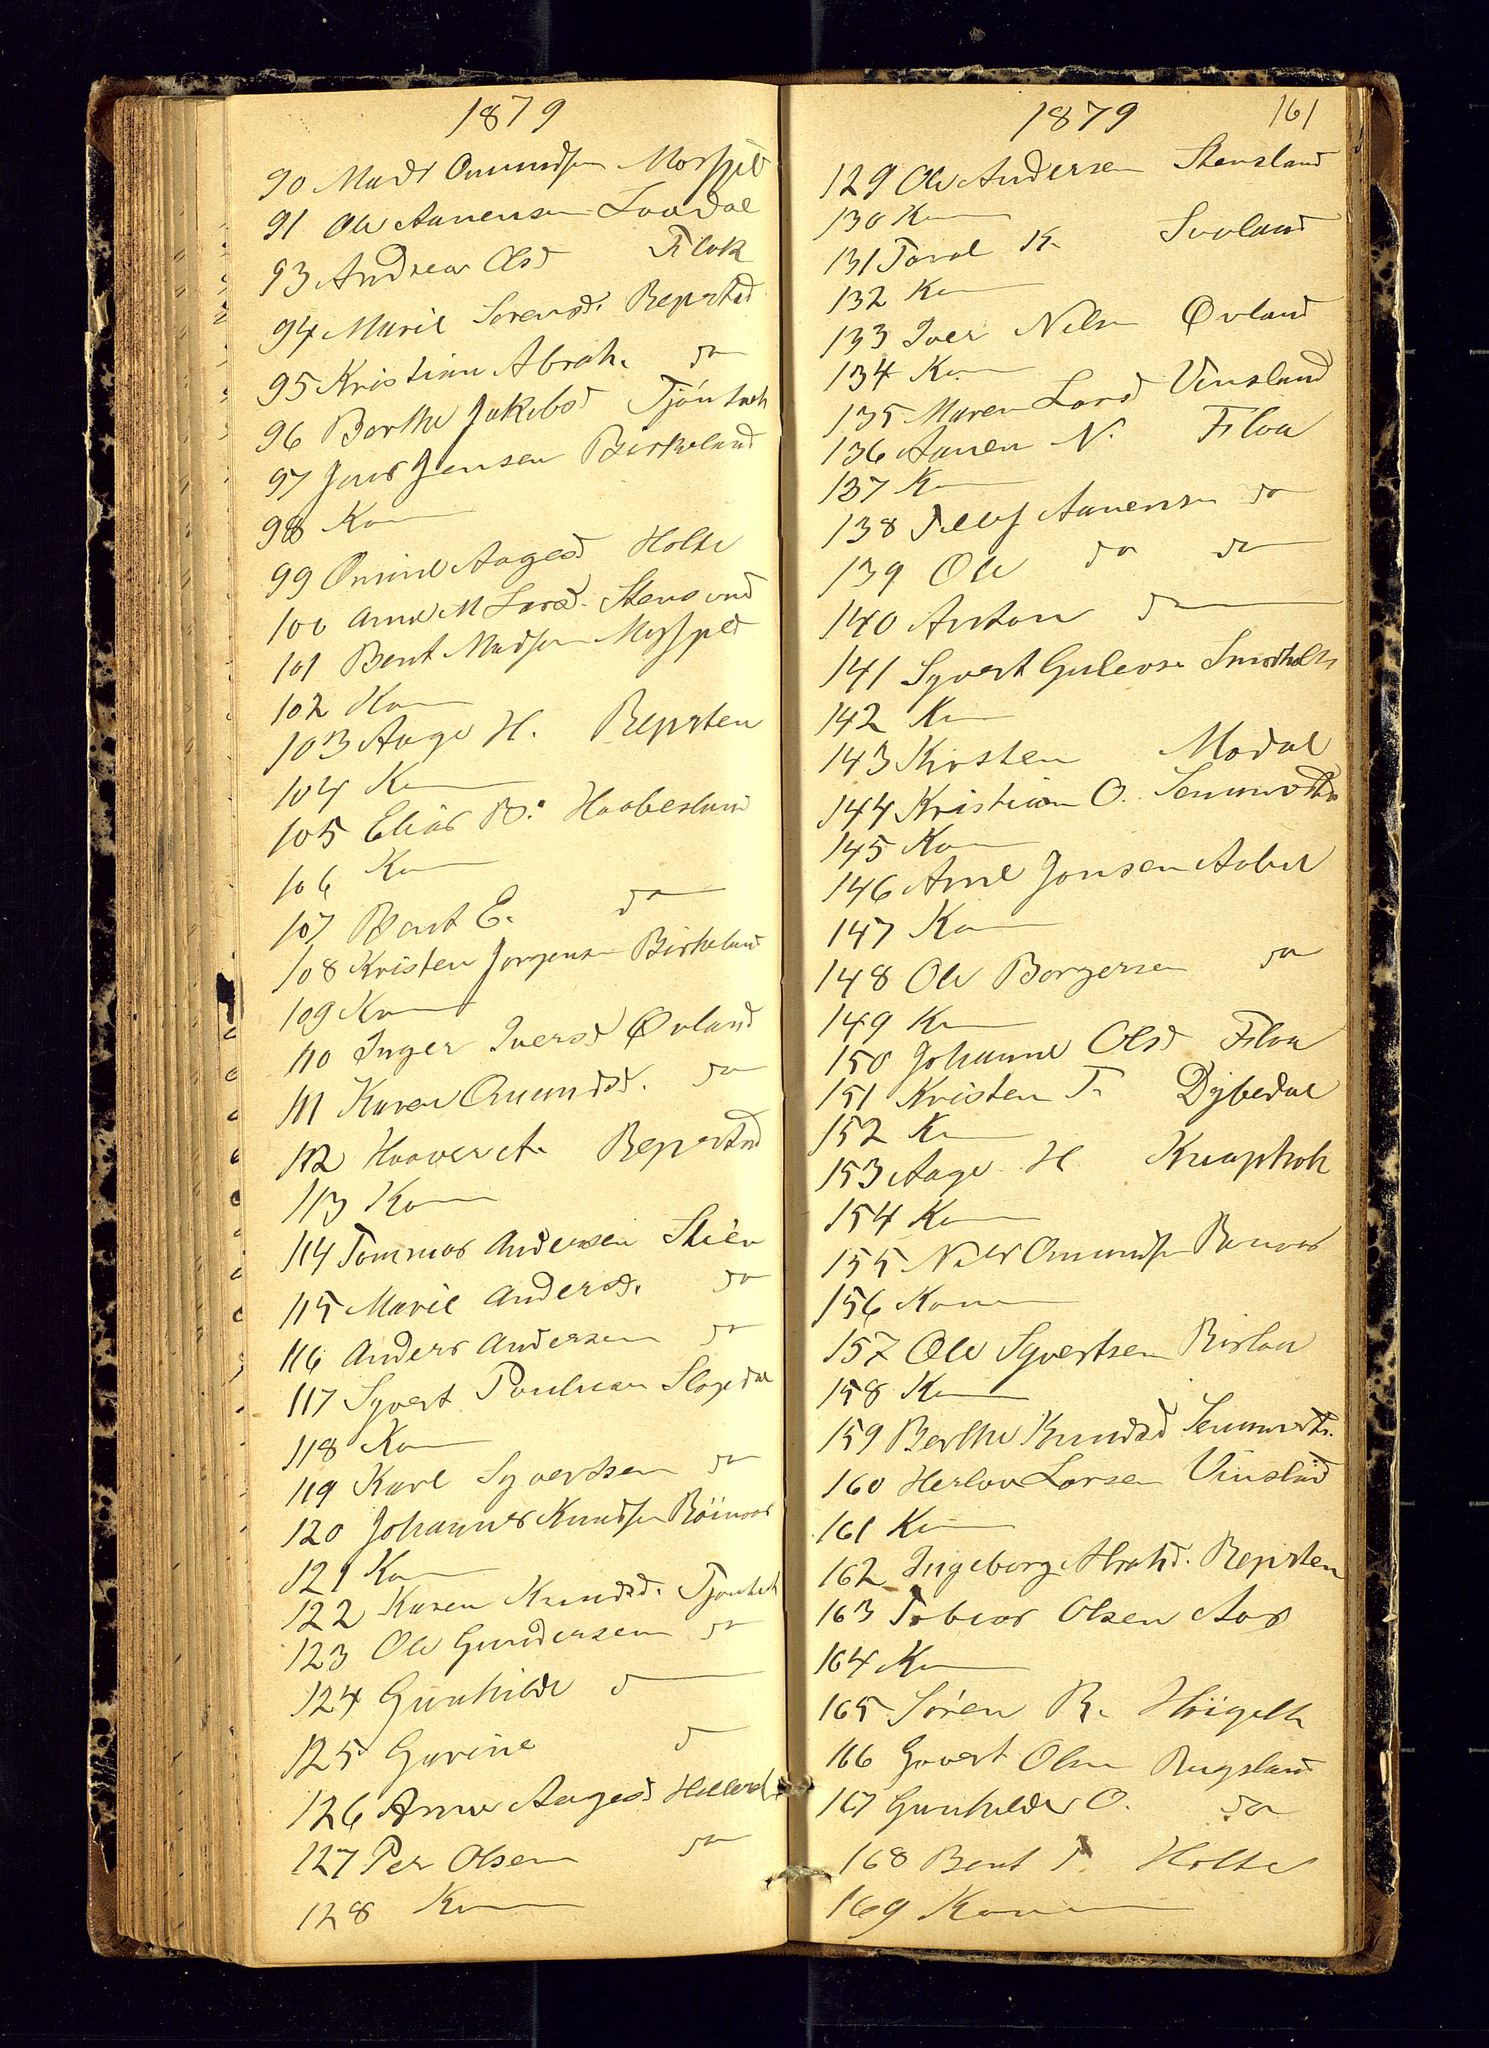 1879
90 Mads Omundsen Mosfjeld
91 Ole Aanensen Laudal
93 Andrea Olsd Flok
94 Marie Sorensd. Repsted
95 Kristian Abrah. do
96 Berthe Jakobsd
97 Jens Jensen Birkeland
98 Kon
99 Omine Aagesd Holte
100 Anne M Larsd.
101 Bent Madsen Mosfjeld
102 Kon
103 Aage H. Repsten
104 Kon
105 Elias B. Haabesland
106 Kon
107 Bent E. do
108 Kristen Jorgensen Birkeland
109 Kon
110 Inger Iversd Øvland
111 Karen Omundsd. do
112 Haaver A. Repsted
113 Kon
114 Tommas Andersen
115 Marie Andersd. do
116 Anders Andersen do
117 Syvert Paulsen
118 Kon
119 Karl Syvertsen do
120 Johannes Knudsen
121 Kon
122 Karen Knudsd.
123 Ole Gundersen do
124 Gunhilde d
125 Gurine d
126 Anne Aagesd
127 Per Olsen do
128 Kon
1879 161
129 Ole Andersen Stensland
130 Kon
131 Taral K.
132 Kon
133 Iver Nilsen Øvland
134 Kon
135 Maren Larsd Vinsland
136 Aanen N. Floa
137 Kon
138 Tellef Aanensen do
139 Ole do do
140 Anton do
141 Syvert Gulevsen
142 Kon
143 Kirsten Modal
144 Kristian O.
145 Kon
146 Arne Jonsen Aabel
147 Kon
148 Ole Borgersen do
149 Kon
150 Johanne Olsd Floa
151 Kristen T. Dybedal
152 Kon
153 Aage H Knaphok
154 Kon
155 Nils Omundsen
156 Konen
157 Ole Syvertsen
158 Kon
159 Berthe Knudsd
160 Herlov Larsen Vinsland
161 Kon
162 Ingeborg Abrahd. Repsten
163 Tobias Olsen Aas
164 Kon
165 Sören R.
166 Govert Olsen Rugsland
167 Gunhilde O. do
168 Bent T. Holte
169 Konen